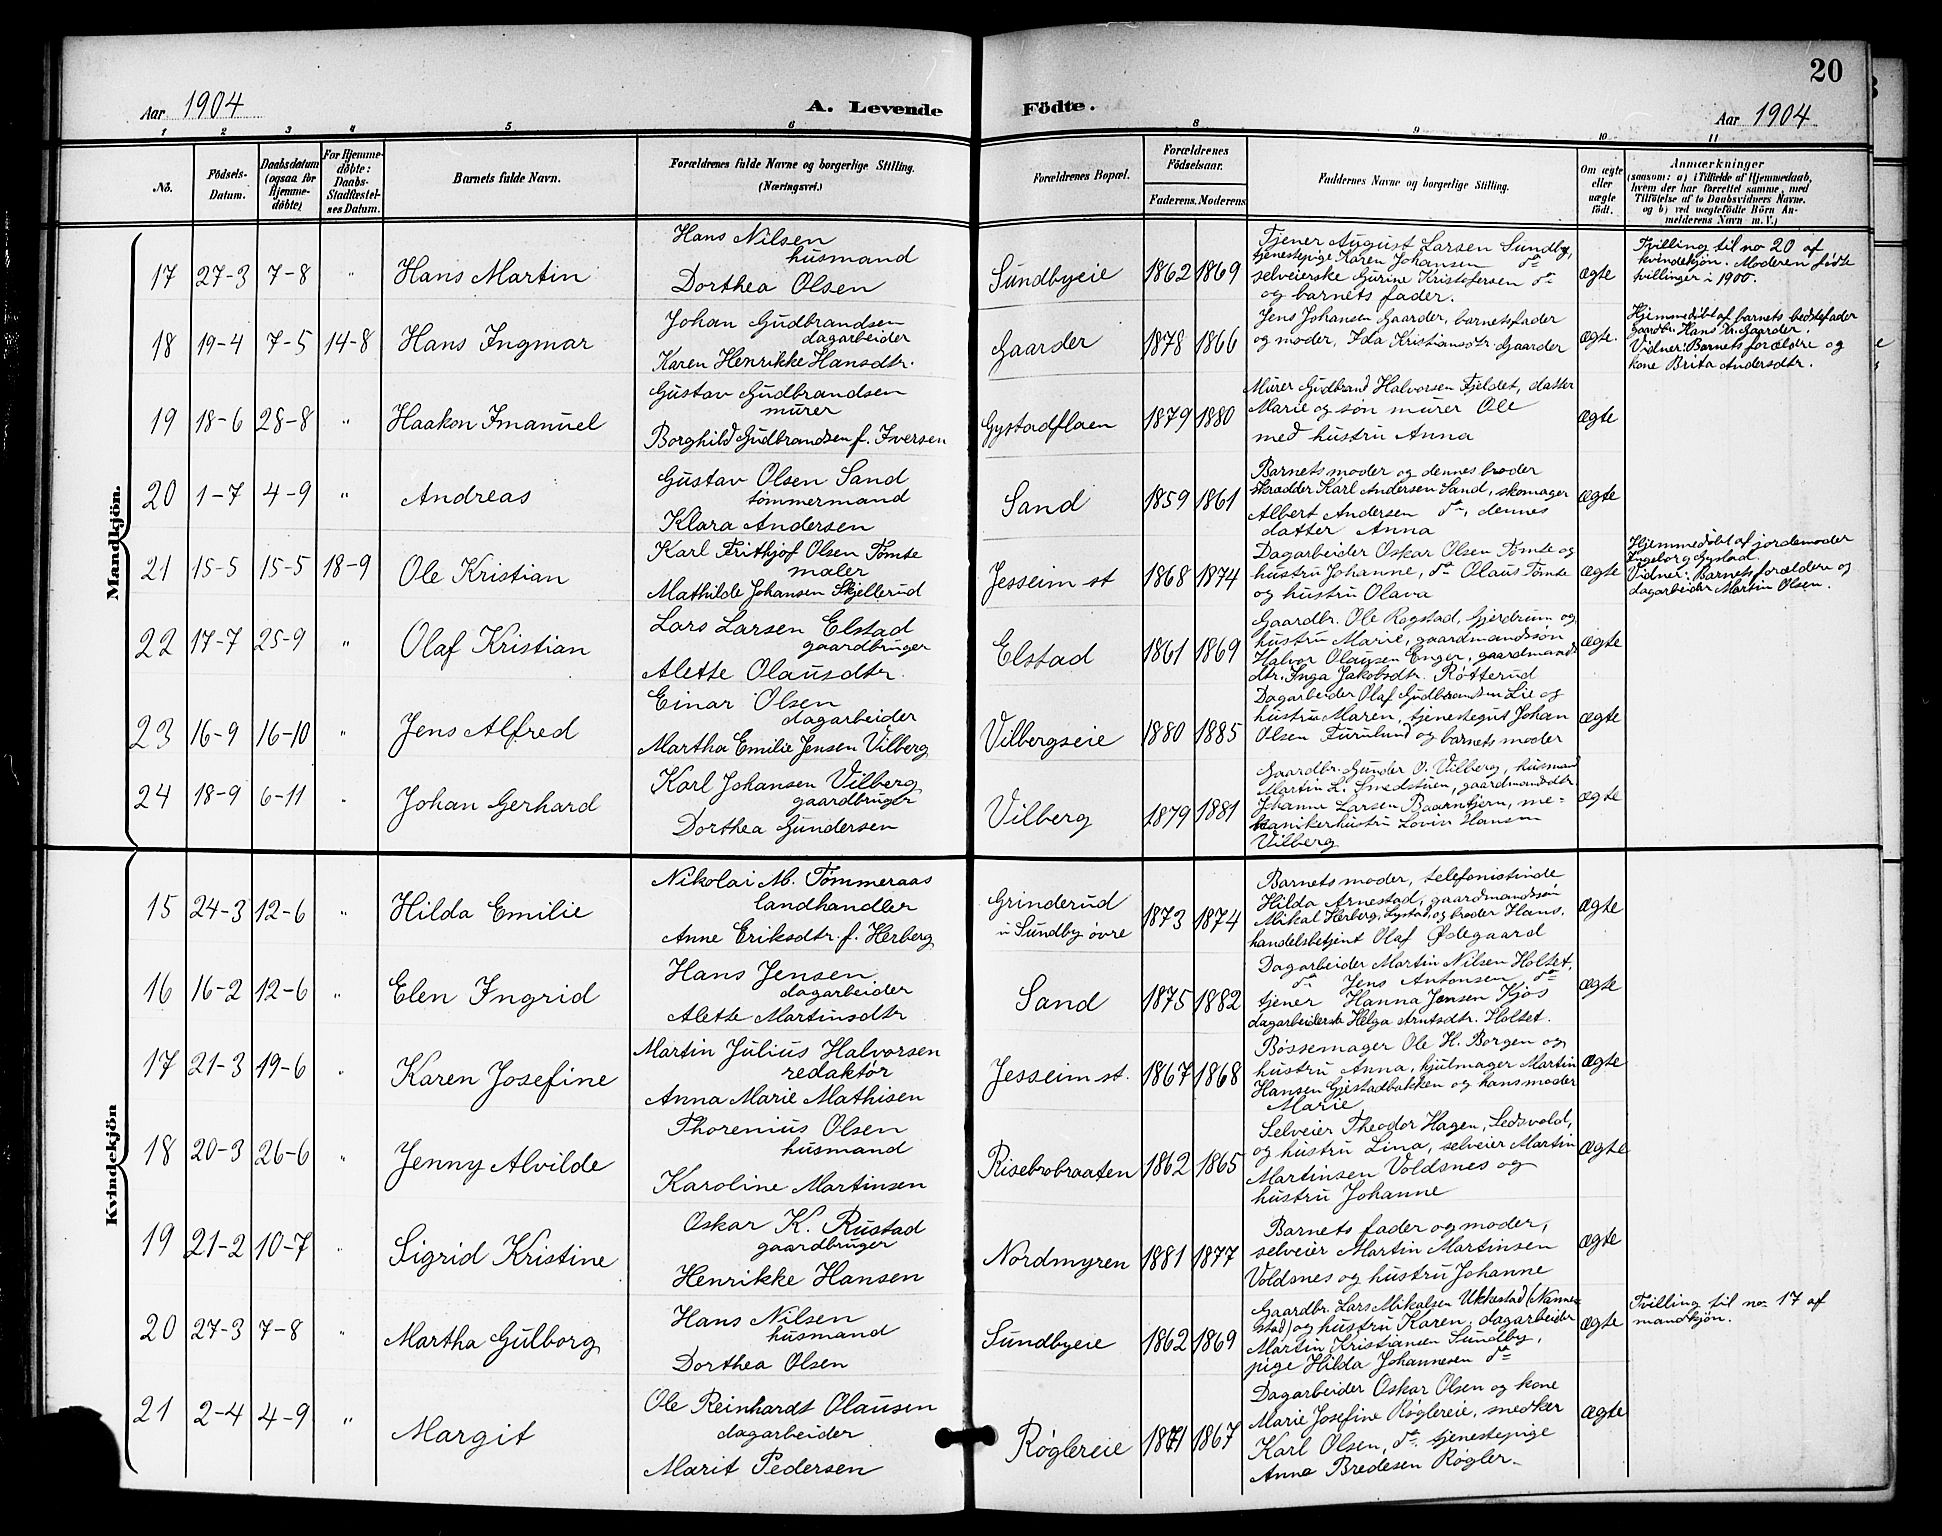 20
Aar 1904 A. Levende Födte. Aar 1904
1 2 3 4 5 6 8 9 10 11
Nö.
Födsels-Datum.
Daabsdatum (ogsaa for Hjemme-döbte)
For Hjemme-döbte: Daabs-Stadfæstel-ses Datum.
Barnets fulde Navn.
Forældrenes fulde Navne og borgerlige Stilling. (Næringsvei.)
Forældrenes Bopæl.
Forældrenes Födselsaar.
Faderens. Moderens.
Faddernes Navne og borgerlige Stilling.
Om ægte eller uægte födt.
Anmærkninger
(saasom: a) i Tilfælde af Hjemmedaab,
hvem der har forrettet samme, med
Tilföielse af to Daabsvidners Navne.
og b) ved uægtefödte Börn An-
melderens Navn m. V.)
Mandkjön.
17 27-3 7-8 " Hans Martin
Hans Nilsen
husmand
Dorthea Olsen
Sundbyeie 1862 1869
Tjener August Larsen Sundby,
tjenestepige Karen Johansen do
selveierske Gurine Kristofersen do
og barnets fader.
ægte
Tvilling til no 20 af
kvindekjøn. Moderen fødte
tvillinger i 1900.
18 19-4 7-5 14-8 Hans Ingmar
Johan Gudbrandsen
dagarbeider
Karen Henrikke Hansdtr.
Gaarder 1878 1866
Jens Johansen Gaarder, barnets fader
og moder, Ida Kristiansdtr. Gaarder
ægte.
Hjemmedöbt af barnets bedstefader
gaardbr. Hans Kr. Gaarder.
Vidner: Barnets forældre og
kone Brita Andersdtr.
19 18-6 28-8 " Haakon Imanuel
Gustav Gudbrandsen
murer
Borghild Gudbrandsen f. Iversen
Gystadflaen 1879 1880
Murer Gudbrand Halvorsen Fjeldet, datter
Marie og søn murer Ole
med hustru Anna
ægte
20 1-7 4-9 " Andreas
Gustav Olsen Sand
tømmermand
Klara Andersen
Sand 1859 1861
Barnets moder og dennes broder
skrædder Karl Andersen Sand, skomager
Albert Andersen do, dennes
datter Anna
ægte
21 15-5 15-5 18-9 Ole Kristian
Karl Frithjof Olsen Tømte
maler
Mathilde Johansen Skjellerud
Jesseim st 1868 1874
Dagarbeider Oskar Olsen Tømte og
hustru Johanne, do Olaus Tømte
og hustru Olava
ægte
Hjemmedöbt af jordemoder
Ingeborg Gystad.
Vidner: Barnets forældre og
dagarbeider Martin Olsen.
22 17-7 25-9 " Olaf Kristian
Lars Larsen Elstad
gaardbruger
Alette Olausdtr.
Elstad 1861 1869
Gaardbr. Ole Rogstad, Gjerdrum og
hustru Marie, gaardmandssøn
Halvor Olausen Enger, gaardmands
dtr. Inga Jakobsdtr. Røtterud
ægte
23 16-9 16-10 " Jens Alfred
Einar Olsen
dagarbeider
Martha Emilie Jensen Vilberg
Vilbergseie 1880 1885
Dagarbeider Olaf Gudbrandsen Lie og
hustru Maren, tjenestegut Johan
Olsen Furulund og barnets moder
ægte
24 18-9 6-11 " Johan Gerhard
Karl Johansen Vilberg
gaardbruger
Dorthea Gundersen
Vilberg 1879 1881
Gaardbr. Gunder O. Vilberg, husmand
Martin L. Smedstuen, gaardmandsdtr.
Johanne Larsen Baarntjern, me-
kanikerhustru Lovise Hansen
Vilberg
ægte
Kvindekjön
15 24-3 12-6 " Hilda Emilie
Nikolai M. Tømmeraas
landhandler
Anne Eriksdtr. f. Herberg
Grinderud
i Sundby øvre 1873 1874
Barnets moder, telefonistinde
Hilda Arnestad, gaardmandssøn
Mikal Herberg, Gystad, og broder Hans.
handelsbetjent Olaf Ødegaard
ægte
16 16-2 12-6 " Elen Ingrid
Hans Jensen
dagarbeider
Alette Martinsdtr
Sand 1875 1882
Dagarbeider Martin Nilsen Holtet,
do Jens Antonsen do
tjener Hanna Jensen Kjos
dagarbeiderske Helga Arntsdtr. Holtet.
ægte
17 21-3 19-6 " Karen Josefine
Martin Julius Halvorsen
redaktør
Anna Marie Mathisen
Jesseim st. 1867 1868
Bøssemager Ole H. Borgen og
hustru Anna, hjulmager Martin
Hansen Gjestadbakken og hans moder
Marie
ægte
18 20-3 26-6 " Jenny Alvilde
Thorenius Olsen
husmand
Karoline Martinsen
Risebrobraaten 1862 1865
Selveier Theodor Hagen, Ledsvold,
og hustru Lina, selveier Martin
Martinsen Voldsnes og
hustru Johanne
ægte
19 21-2 10-7 " Sigrid Kristine
Oskar K. Rustad
gaardbruger
Henrikke Hansen
Nordmyren 1881 1877
Barnets fader og moder,
selveier Martin Martinsen
Voldsnes og hustru Johanne
ægte
20 27-3 7-8 " Martha Gulborg
Hans Nilsen
husmand
Dorthea Olsen
Sundbyeie 1862 1869
Gaardbr. Lars Mikalsen Ukkestad (Nanne-
stad) og hustru Karen, dagarbeider
Martin Kristiansen Sundby,
pige Hilda Johannesen do
ægte
Tvilling til no 17 af
mandkjøn.
21 2-4 4-9 " Margit
Ole Reinhardt Olausen
dagarbeider
Marit Pedersen
Røglereie 1871 1867
Dagarbeider Oskar Olsen og kone
Marie Josefine Røglereie, snedker
Karl Olsen, do. tjenestepige
Anne Bredesen Røgler.
ægte